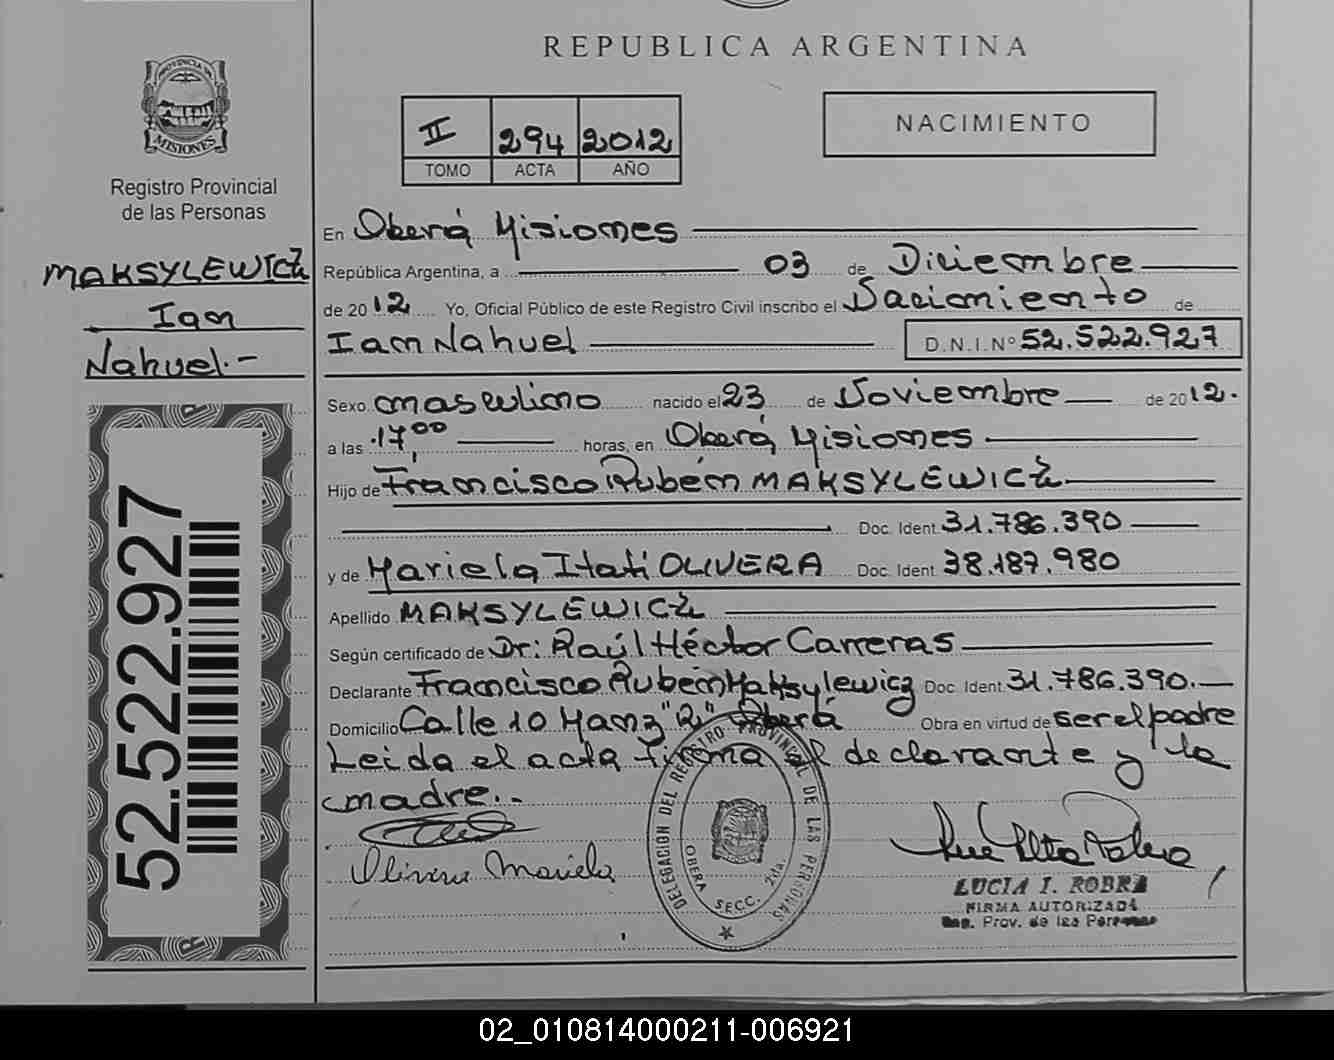 REPUBLICA ARGENTINA
PROVINCIA DE
MISIONES
Registro Provincial
de las Personas
MAKSYLEWICZ
Ian
Nahuel.-
52.522.927
II 294 2012
TOMO ACTA AÑO
NACIMIENTO
En Oberá Misiones
República Argentina, a 03 de Diciembre
de 2012 Yo, Oficial Público de este Registro Civil inscribo el Nacimiento de
Ian Nahuel D.N.I. Nº 52.522.927
Sexo masculino nacido el 23 de Noviembre de 2012.
a las 17,00 horas, en Oberá, Misiones
Hijo de Francisco Rubén MAKSYLEWICZ
Doc. Ident. 31.786.390
y de Mariela Itati OLIVERA Doc. Ident. 38.187.980
Apellido MAKSYLEWICZ
Según certificado de Dr: Raúl Héctor Carreras
Declarante Francisco Rubén Maksylewicz Doc. Ident. 31.786.390.
Domicilio Calle 10 Manz "R" Oberá Obra en virtud de ser el padre
Leida el acta firma el declarante y la
madre..
Olivera Mariela
DELEGACION DEL REGISTRO PROVINCIAL DE LAS PERSONAS
OBERA SECC. 2da.
LUCIA I. ROBRA
FIRMA AUTORIZADA
Reg. Prov. de las Personas
02_010814000211-006921